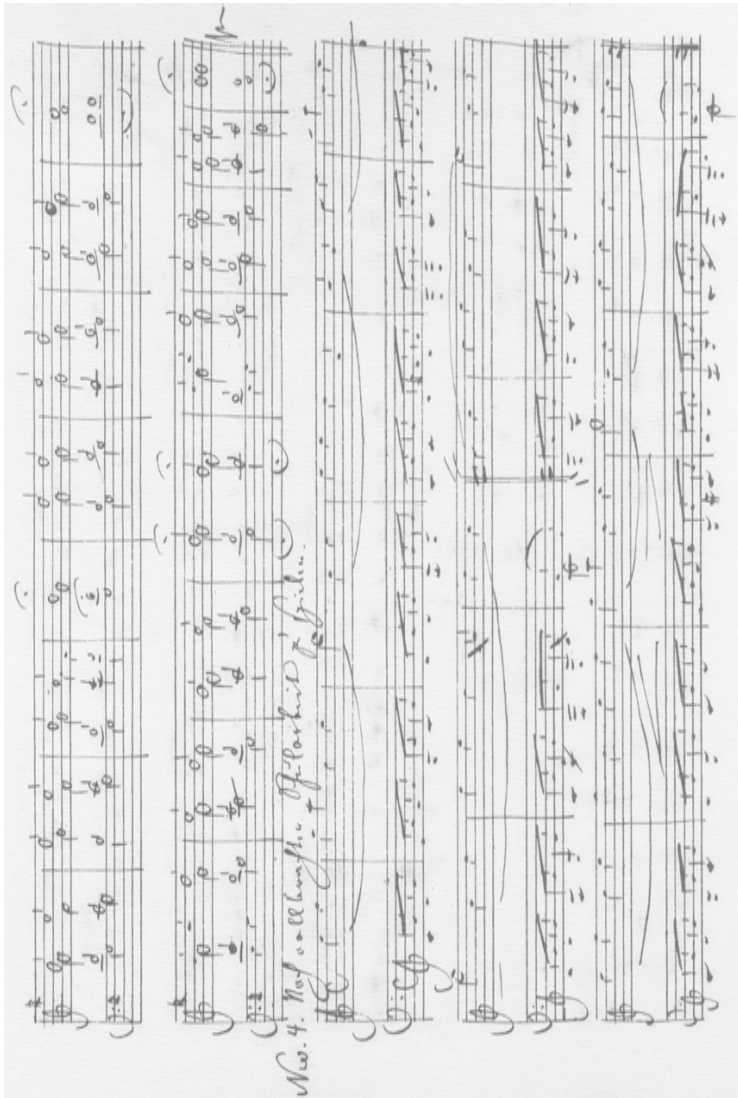 Nro. 4. Nach vollbrachter Schularbeit z. spielen.